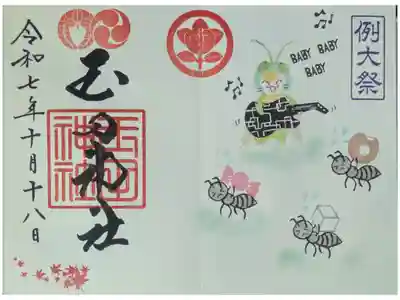 例大祭
BABY BABY
BABY
玉田神社
令和七年十月十八日